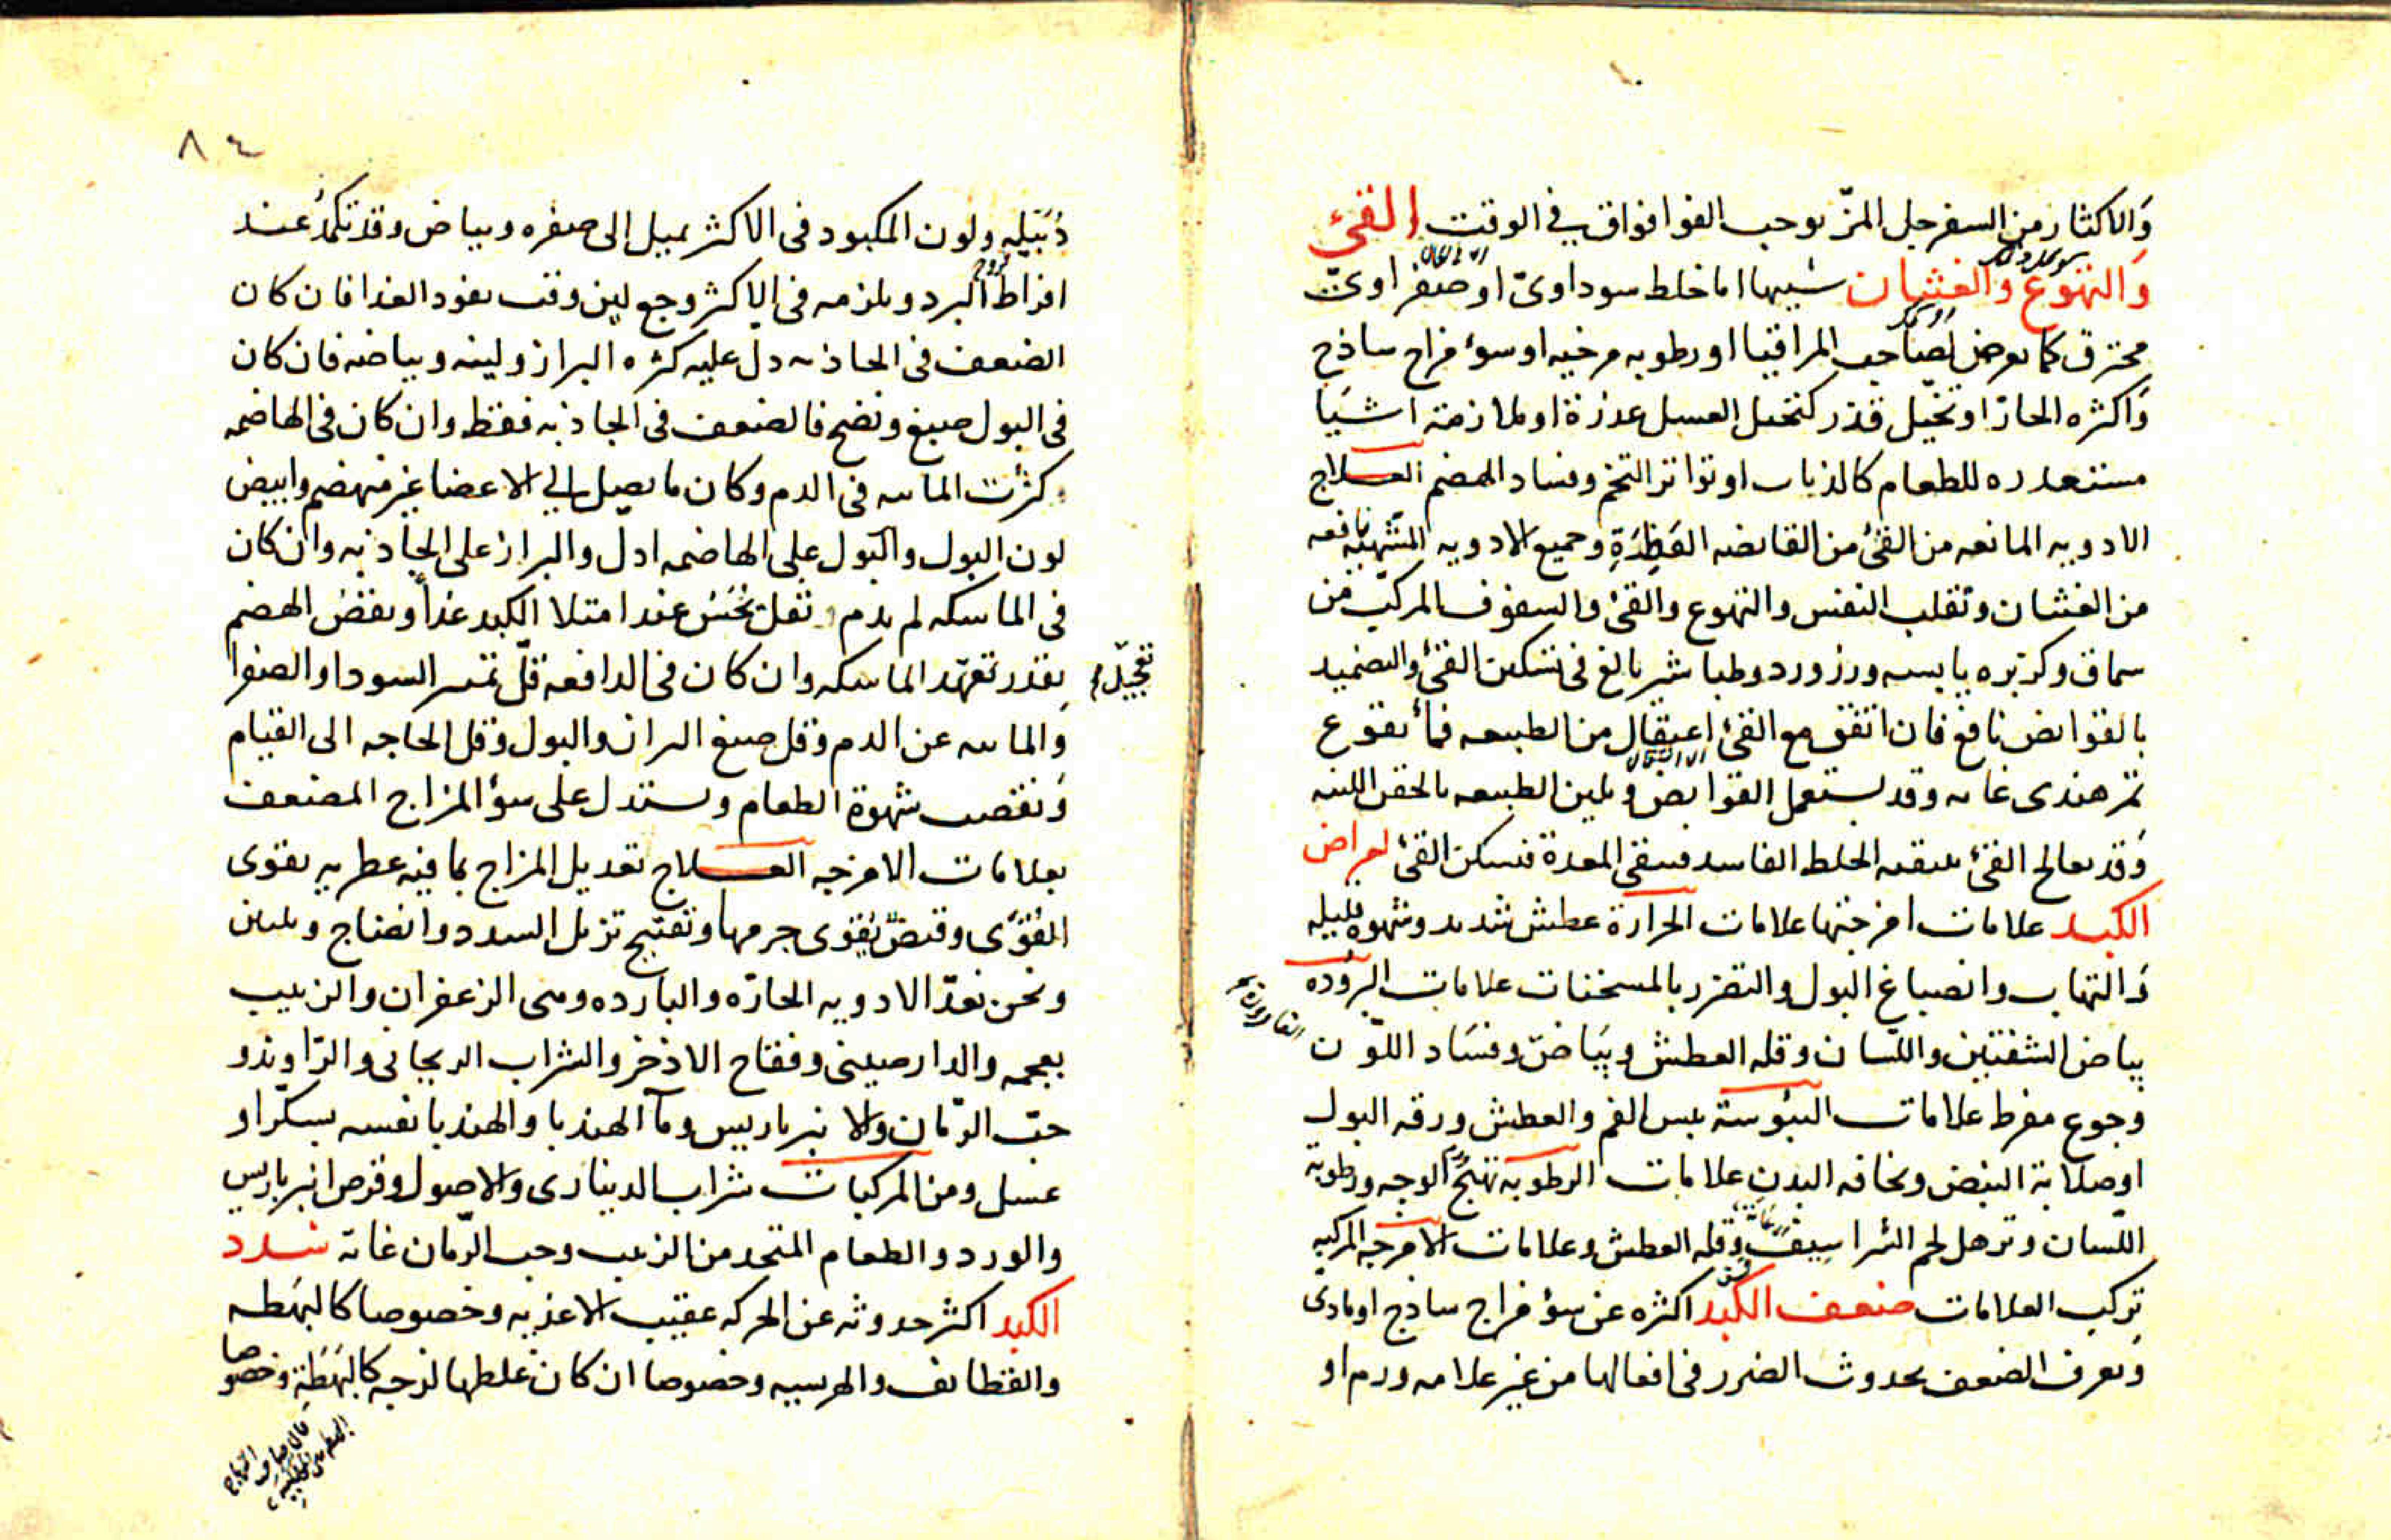 والاكثار من السفرجل المزّ يوجب الفوافواق في الوقت القئ
والتهوع والغثيان سببها اما خلط سوداوىّ او صفراوىّ
محترق كما يعرض لصاحب المراقيا او رطوبه مرخيه او سوء مزاج ساذج
واكثره الحارّ او تخيّل قذر كتخيل العسل عذرة او ملازمة اشيا
مستقذره للطعام كالذباب او تواتر التخم وفساد الهضم العلاج
الادويه المانعه من القئ من القابضه العَطِرَةِ وجميع الادويه المشهيّه نافعه
من الغثيان وتقلب النفس والتهوع والقئ والسفوف المركّب من
سماق وكزبره يابسه ورزورد وطباشير بالغ فى تسكين القئ والتضميد
بالقوابض نافع فان اتفق مع القئ اعتقال من الطبيعه فمأ نقوع
تمر هندى غايه وقد يستعمل القوابض ويلين الطبيعه بالحقن اللينه
وقد يعالج القئ بتنقيه الخلط الفاسد فينقى المعدة فيسكن القئ امراض
الكبد علامات امزجتها علامات الحرارة عطش شديد وشهوه قليله
والتهاب وانصباغ البول والتضرر بالمسخنات علامات البروده
بياض الشفتين واللسان وقله العطش وبياض وفساد اللون
وجوع مفرط علامات اليبوسة يبس الفم والعطش ورقه البول
اوصلابة النبض ونحافه البدن علامات الرطوبه تهيّج الوجه ورطوبة
اللسان وترهل لحم الشراسيف وقله العطش وعلامات الامزجه المركبه
تركيب العلامات ضعف الكبد اكثره عن سؤ مزاج ساذج اومادى
ويعرف الضعف بحدوث الضرر فى افعالها من غير علامه ورم او
٨٤
دُبَيْلِه ولون المكبود فى الاكثر يميل الى صفره وبياض وقد تكمدُ عند
افراط البرد ويلزمه فى الاكثر وجع لين وقت نفود الغدا فان كان
الضعف فى الجاذبه دل عليه كثره البراز ولينه وبياضه فان كان
فى البول صبغ ونضج فالضعف فى الجاذبه فقط وان كان فى الهاضمه
كثرت المائيه فى الدم وكان ما يصل الى الاعضا غير منهضم وابيض
لون البول والبول على الهاضمه ادلّ والبراز على الجاذبه وان كان
فى الماسكه لم يدم ثقل يُحَسّ عند امتلا الكبد غذأ ونقض الهضم
بقدر تعهّد الماسكه وان كان فى الدافعه قلّ تميز السودا والصفرا
تعجيل
والمائيه عن الدم وقل صبغ البراز والبول وقل الحاجه الى القيام
ونقصت شهوة الطعام ويستدل على سؤ المزاج المضعف
بعلامات الامزجه العلاج تعديل المزاج بما فيه عطريه يقوى
القوى وقبضٌ يُقوى جرمها وتفتيح تزيل السدد وانضاج وتليين
ونحن نعدّ الادويه الحارّه والبارده وهى الزعفران والزبيب
بعجمه والدارصينى وفقاح الاذخر والشراب الريحانى والرّاوندو
حبّ الرّمان والانبرباريس ومآ الهندبا والهندبا نفسه بسكّر او
عسل ومن المركبات شراب الدينارى والاصول وقرص انبرباريس
والورد والطعام المتخد من الزبيب وحب الرّمان غاية سدد
الكبد اكثر حدوثه عن الحركه عقيب الاغذيه وخصوصا كالبهَطه
والقطائف والهريسه وخصوصا ان كان غلظها لزجه كالبَهَطَّةِ وخصوصا